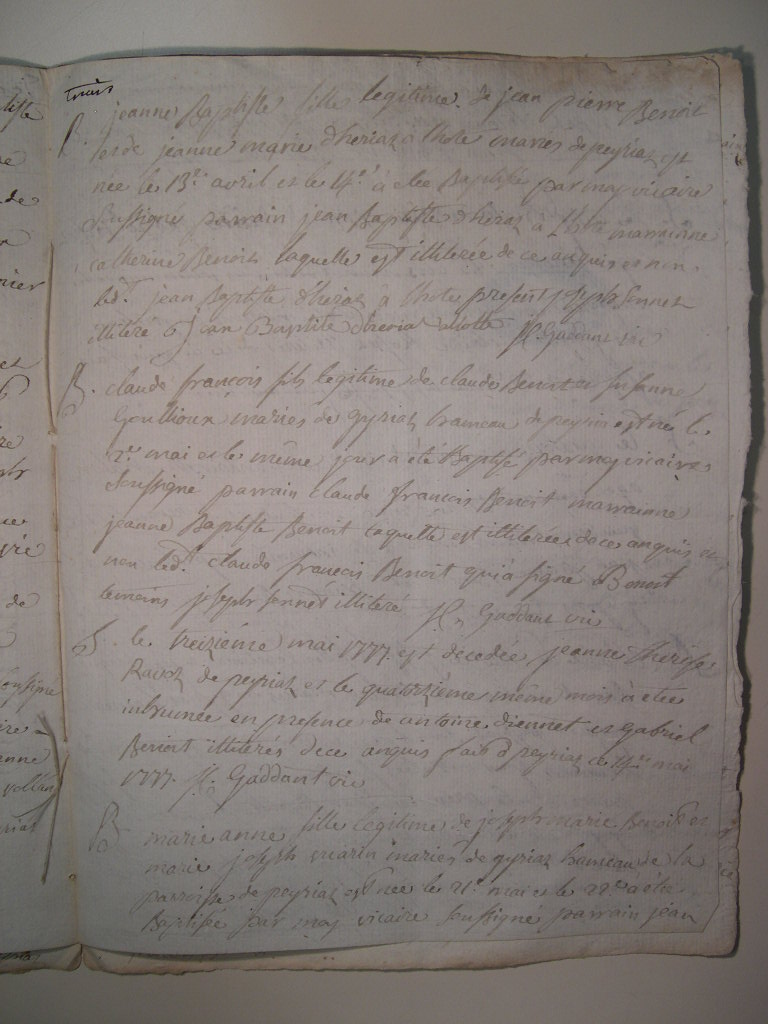 trois
B. jeanne Baptiste fille legitime de jean pierre Benoit
et de jeanne marie d'heriaz à lhote mariés de peyriaz est
née le 13e avril et le 14e à etee Baptisée par moy vicaire
soussigné parrain jean Baptiste dheriaz à L'hote marrainne
catherine Benoit laquelle est illiterée de ce anquis et non
led.t jean Baptiste d'heriaz à lhote present joseph Sonnet
illiteré Jean Baptite dheriaz alotte Gaddant vic
B. claude françois fils legitime de claude Benoit et Susanne
Goullioux mariés de gyriaz hameau de peyria est né le
2e mai et le même jour a été Baptisé par moy vicaire
soussigné parrain claude françois Benoit marrainne
jeanne Baptiste Benoit laquelle est illiterée de ce anquis et
non led.t claude francois Benoit qui a signé Benoit
temoins joseph Sonnet illiteré Gaddant vic
S. le treizième mai 1777 est decedée jeanne therese
Ravoz de peyriaz et le quatorzième même mois à etee
inhumée en presence de antoine diennet et Gabriel
Benoit illiterés de ce anquis fait à peyriaz ce 14e mai
1777. Gaddant vic
B marie anne fille legitime de joseph marie Benoit et
marie joseph vuarin mariés de gyriaz hameau de la
parroisse de peyriaz est née le 21e mai et le 22e a été
Baptisée par moy vicaire soussigné parrain jean